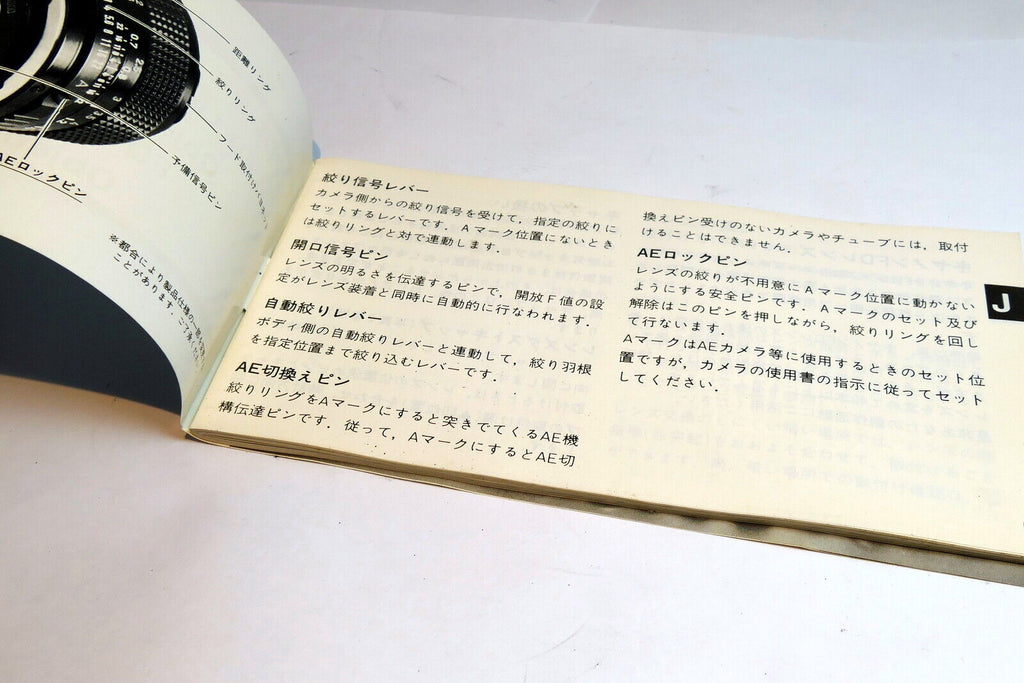 距離リング
絞りリング
フード取付けバヨネット
予備信号ピン
AEロックピン
※都合により製品仕様の一部を
ことがあります。ご了承
絞り信号レバー
カメラ側からの絞り信号を受けて，指定の絞りに
セットするレバーです．Aマーク位置にないとき
は絞りリングと対で連動します．
開口信号ピン
レンズの明るさを伝達するピンで，開放F値の設
定がレンズ装着と同時に自動的に行なわれます．
自動絞りレバー
ボディ側の自動絞りレバーと連動して，絞り羽根
を指定位置まで絞り込むレバーです．
AE切換えピン
絞りリングをAマークにすると突きでてくるAE機
構伝達ピンです．従って，AマークにするとAE切
換えピン受けのないカメラやチューブには，取付
けることはできません．
AEロックピン
レンズの絞りが不用意にAマーク位置に動かない
ようにする安全ピンです．Aマークのセット及び
解除はこのピンを押しながら，絞りリングを回し
て行ないます．
AマークはAEカメラ等に使用するときのセット位
置ですが，カメラの使用書の指示に従ってセット
してください．
J